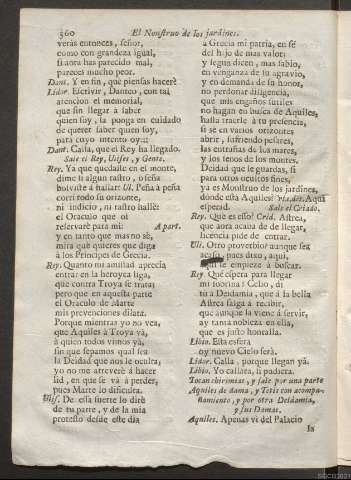 360
El Monstruo de los jardines.
verás entonces, señor,
como con grandeza igual,
si aora has parecido mal,
pareces mucho peor.
Dant. Y en fin, que piensas hacer?
Lidor. Escrivir, Danteo, con tal
atencion el memorial,
que sin llegar à saber
quien soy, la ponga en cuidado
de querer saber quien soy,
para cuyo intento oy:::
Dant. Calla, que el Rey ha llegado.
Sale el Rey, Ulises, y Gente.
Rey. Ya que quedaste en el monte,
dime si algun rastro, ò seña
bolviste à hallar? Ul. Peña à peña
corri todo su orizonte,
ni indicio, ni rastro hallè:
el Oraculo que oì
reservarè para mì: A part.
y en tanto que mas no sè,
mira què quieres que diga
à los Principes de Grecia.
Rey. Quanto mi amistad aprecia
entrar en la heroyca liga,
que contra Troya se trata;
pero que en aquesta parte
el Oraculo de Marte
mis prevenciones dilata.
Porque mientras yo no vea,
que Aquiles à Troya và,
à quien todos vimos yà,
sin que sepamos qual sea
la Deidad que nos le oculta,
yo no me atreverè à hacer
lid, en que se và à perder,
pues Marte lo dificulta.
Ulis. De essa suerte lo dirè
de tu parte, y de la mia
protesto desde este dia
à Grecia mi patria, en fè
del hijo de mas valor;
y segun dicen, mas sabio,
en venganza de su agravio,
y en demanda de su honor,
no perdonar diligencia,
que mis engaños sutiles
no hagan en busca de Aquiles,
hasta traerle à tu presencia,
si se en varios orizontes
abrir, sufriendo pesares,
las entrañas de los mares,
y los senos de los montes.
Deidad que le guardas, si
para otros ocultos fines,
ya es Monstruo de los jardines,
dònde està Aquiles? Aqui
esperad. Sale el Criado.
Rey. Que es esso? Criad. Astrea,
que aora acaba de llegar,
licencia pide de entrar.
Uli. Otro proverbio? aunque sea
acaso, pues dixo, aqui,
empieze à buscar.
Rey. Què espera para llegar
mi sobrina? Celio, dì
tù à Deidamia, que à la bella
Astrea salga à recibir,
que aunque la viene à servir,
ay tanta nobleza en ella,
que es justo honralla.
Libio. Esta esfera
oy nuevo Cielo serà.
Lidor. Calla, porque llegan yà.
Libio. Yo callara, si pudiera.
Tocan chirimias, y sale por una parte
Aquiles de dama, y Tetis con acompa-
ñamiento, y por otra Deidamia,
y sus Damas.
Aquiles. Apenas vi del Palacio
la